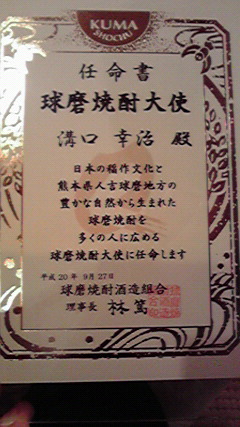 KUMA
SHOCHU
任命書
球磨焼酎大使
溝口 幸治 殿
日本の稲作文化と
熊本県人吉球磨地方の
豊かな自然から生まれた
球磨焼酎を
多くの人に広める
球磨焼酎大使に任命します
平成20年 9月27日
球磨焼酎酒造組合
理事長 林 篤